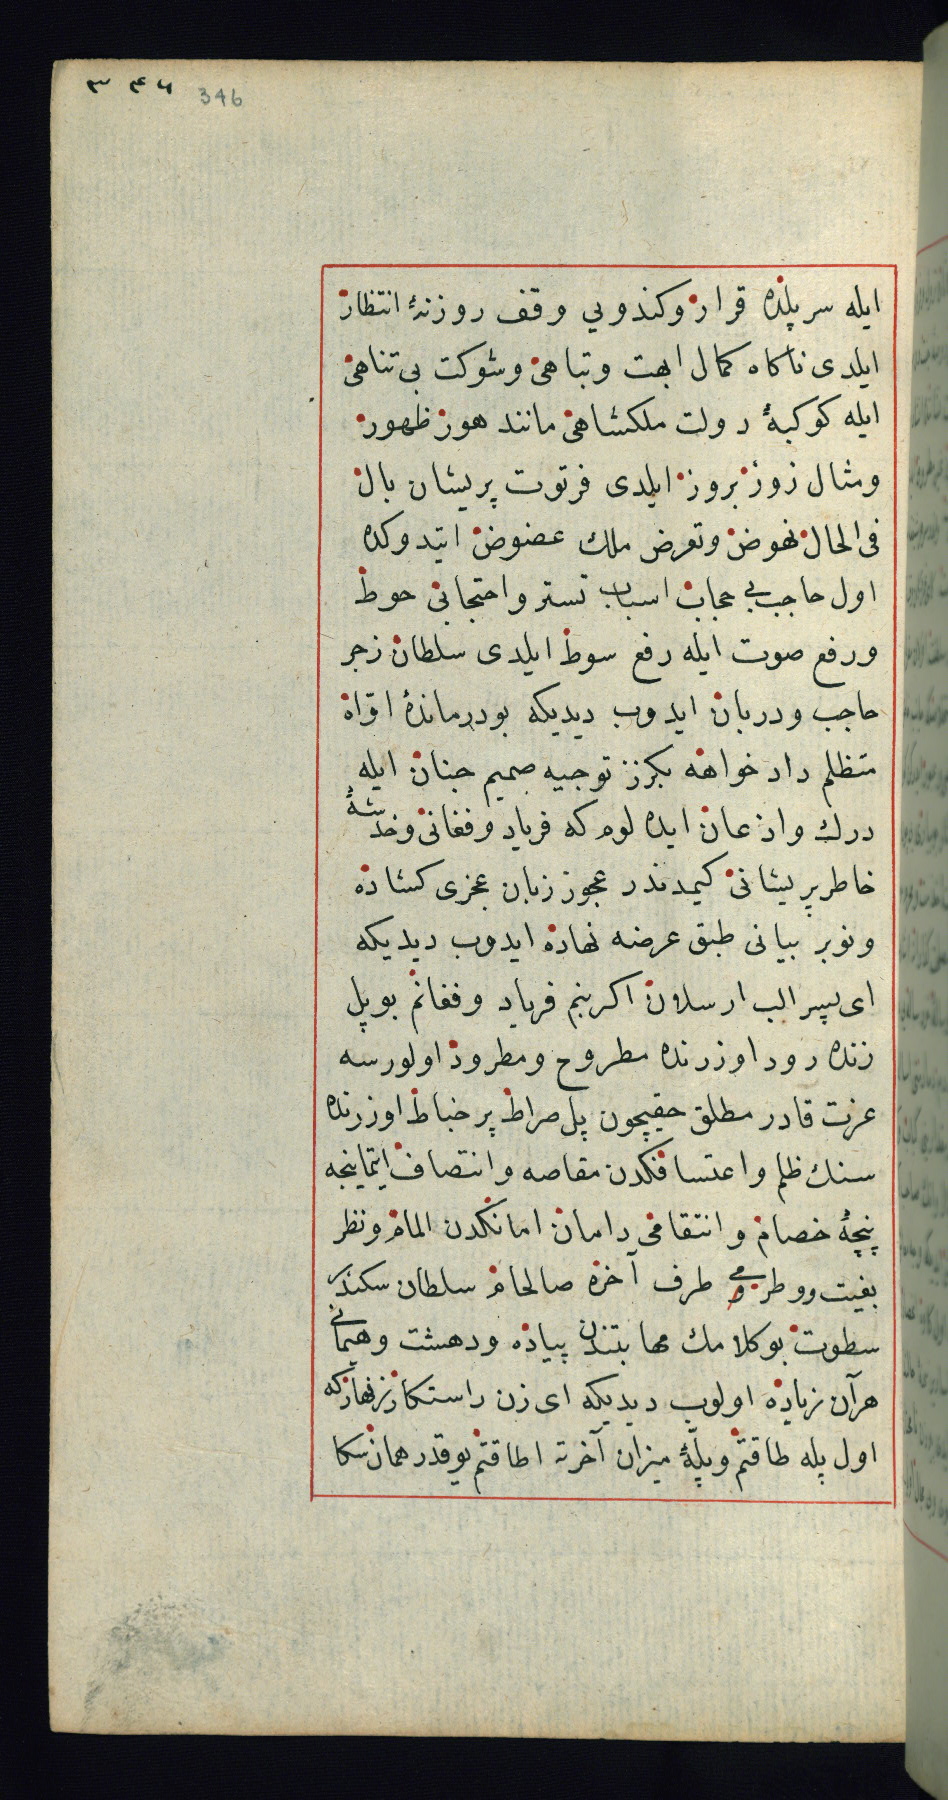 ۳۴۶ 346
ایله سر پلده قرار و کندویی وقف روزنۀ انتظار
ایلدی ناکاه کمال ابهت و تباهی و شوکت بی تناهی
ایله کوکبۀ دولت ملکشاهی مانند هور ظهور
و مثال زور بروز ایلدی فرتوت پریشان بال
فی الحال نهوض و تعرض ملك عضوض ایتدوکده
اول حاجب بی حجاب اسباب تستر و احتجابی حوط
و رفع صوت ایله رفع سوط ایلدی سلطان زجر
حاجب و دربان ایدوب دیدیکه بو درمانده اوّاه
متظلم داد خواهه بکرز توجیه صمیم جنان ایله
درك و اذعان ایده لوم که فریاد و فغانی و خدشۀ
خاطر پریشانی کیمدندر عجوز زبان عجزی کشاده
و نوبر بیانی طبق عرضه نهاده ایدوب دیدیکه
ای پسر الب ارسلان اکر بنم فریاد و فغانم بو پل
زنده رود اوزرنده مطروح و مطرود اولورسه
عزت قادر مطلق حقیچون پل صراط پر خباط اوزرنده
سنك ظلم و اعتسافکدن مقاصه و انتصاف ایتماینجه
پنچۀ خصام و انتقامی دامان امانکدن المام و نظر
بغیت و وطرمی طرف آخره صالحام سلطان سکندر
سطوت بو کلامك مهابتندن پیاده و دهشت و هیمانی
هر آن زیاده اولوب دیدیکه ای زن راستکار زنهار که
اول پله طاقتم و پلّۀ میزان آخرته اطاقتم یوقدر همان سکا